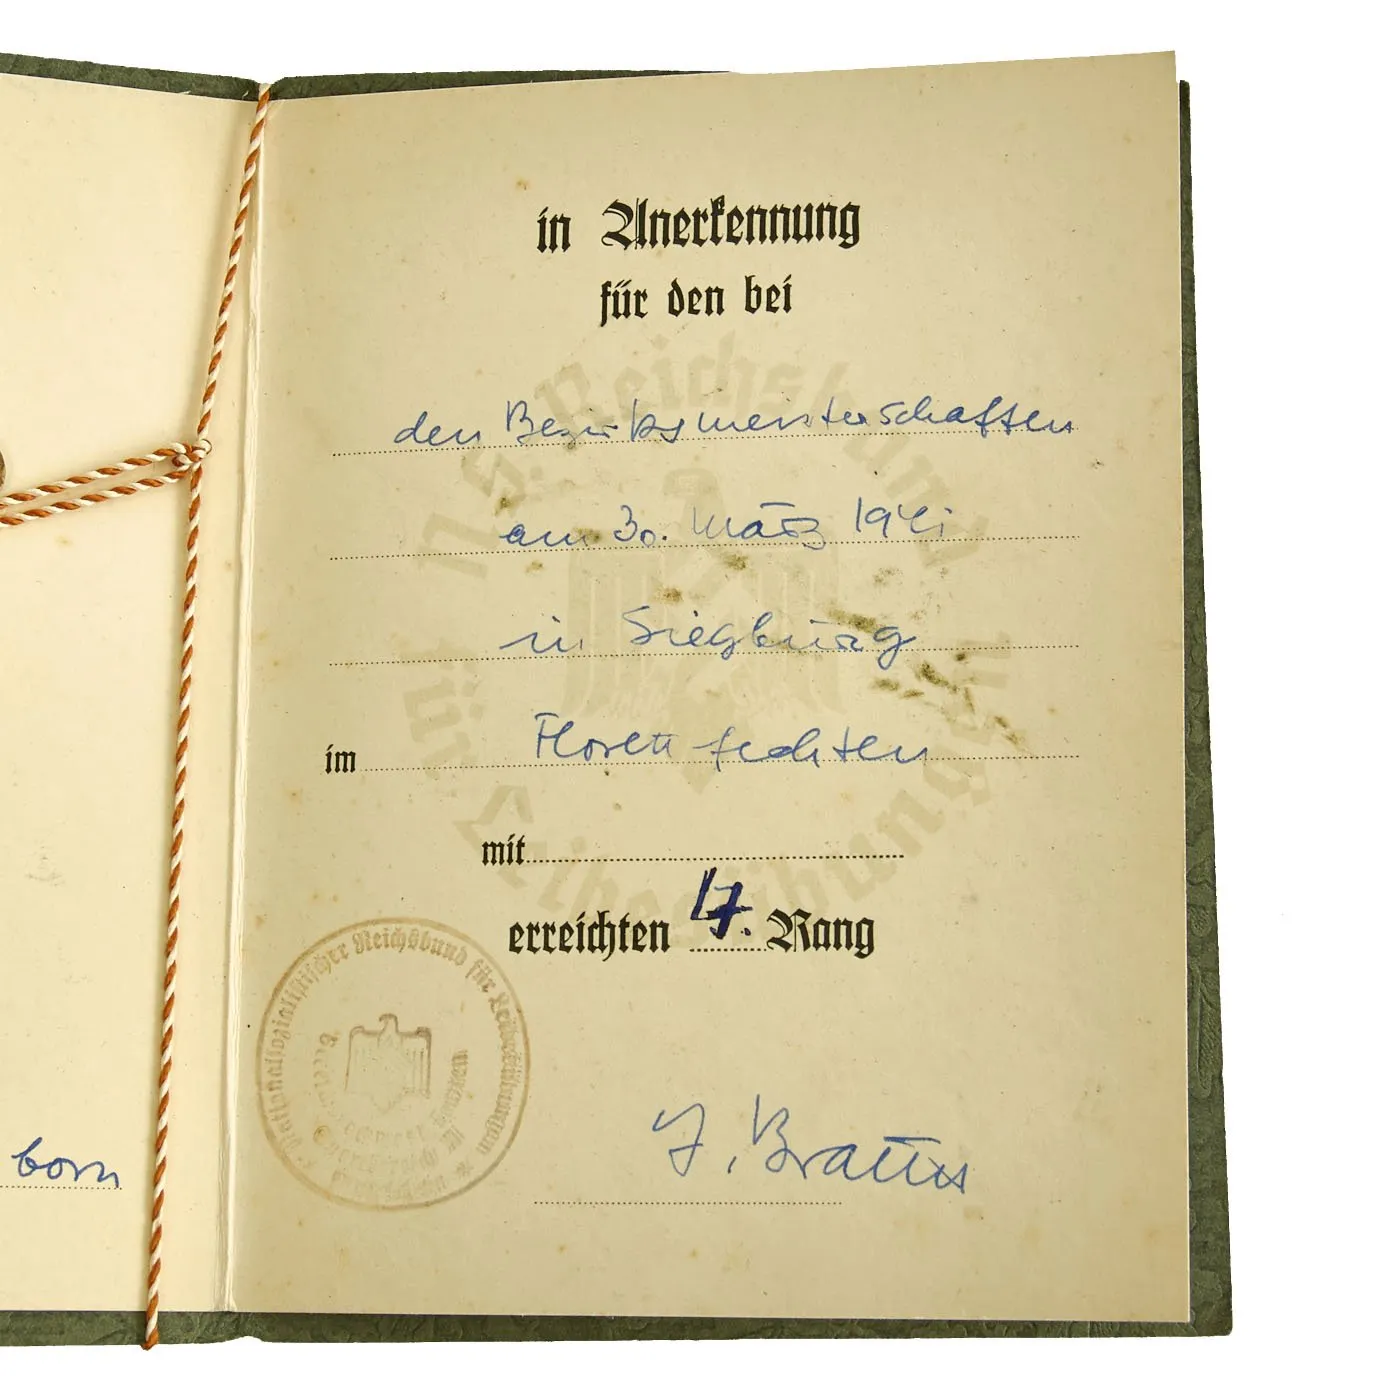 in Anerkennung
für den bei
den Bezirksmeisterschaften
am 30. März 1941
in Siegburg
im Florettfechten
mit
erreichten 4. Rang
N.S. Reichsbund
für Leibesübungen
Nationalsozialistischer Reichsbund für Leibesübungen
born